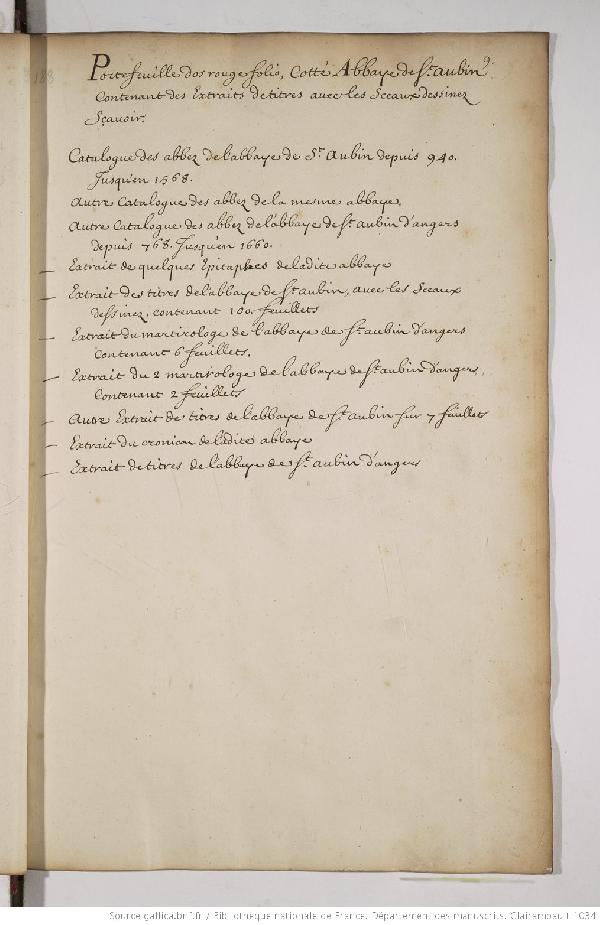 188
9.
Portefeuille dos rouge folio, Cotté Abbaye de St. Aubin
Contenant des Extraits de titres avec les Sceaux dessinez
Sçavoir.
Catalogue des abbez de l'abbaye de St. Aubin depuis 940.
Jusqu'en 1568.
Autre Catalogue des abbez de la mesme abbaye,
Autre Catalogue des abbez de l'abbaye de St. aubin d'angers
depuis 768. Jusqu'en 1660.
Extrait de quelques Epitaphes de ladite abbaye
Extrait des titres de l'abbaye de St. aubin, avec les Sceaux
dessinez. contenant 100. feuillets
Extrait du martirologe de l'abbaye de St. aubin d'angers
Contenant 6 feuillets.
Extrait du 2 martirologe de l'abbaye de St. aubin d'angers,
Contenant 2 feuillets
Autre Extrait de titres de l'abbaye de St. aubin sur 7 feuillets
Extrait du cronicon de ladite abbaye
Extrait de titres de l'abbaye de St. aubin d'angers
Source gallica.bnf.fr / Bibliothèque nationale de France. Département des manuscrits. Clairambault 1034